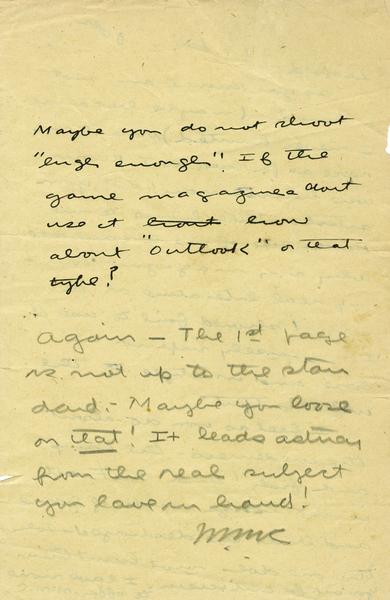 Maybe you do not shoot
"huge enough". If the
game magazines dont
use it how
about "Outlook" or that
type?
Again – The 1st page
is not up to the stan
dard. – Maybe you loose
on that! It leads astray
from the real subject
you have in hand!